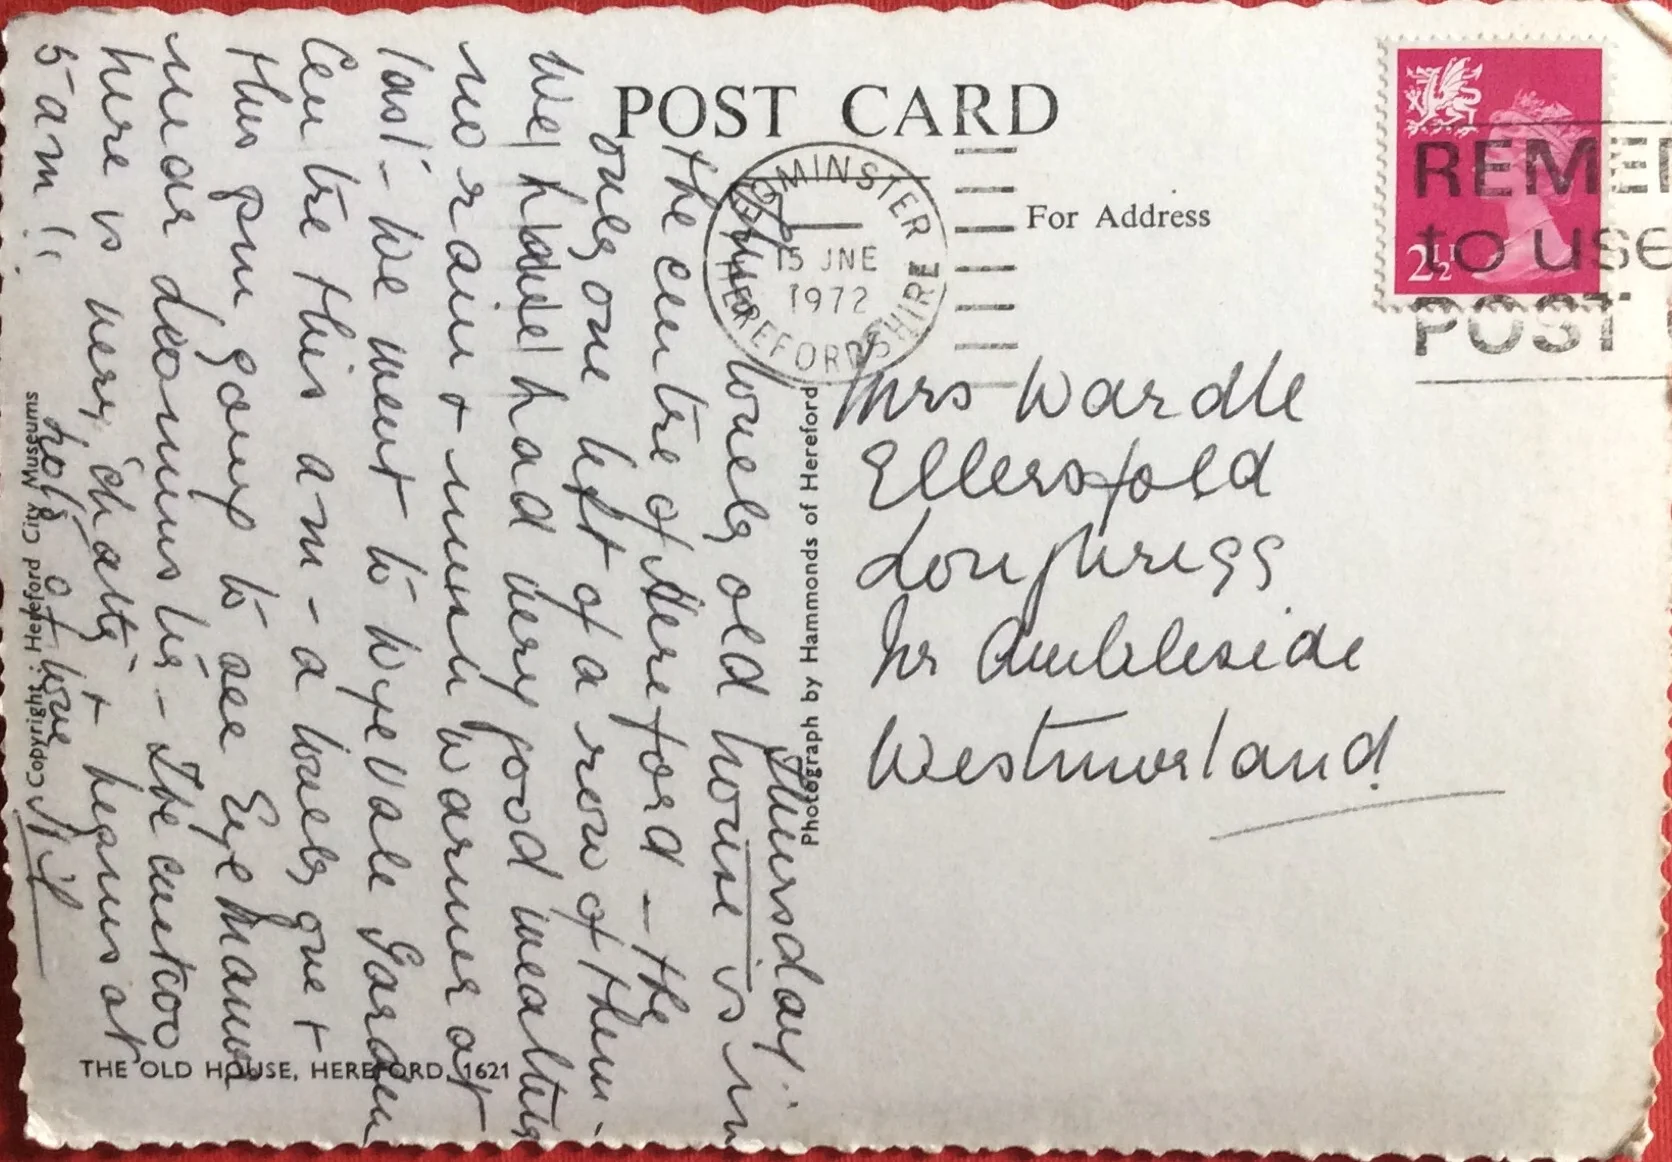 POST CARD
For Address
LEOMINSTER
HEREFORDSHIRE
15 JNE
1972
REMEM
to use
POST
2½
Mrs Wardle
Ellersfold
Loughrigg
Nr Ambleside
Westmorland
Thursday.
This lovely old house is in
the centre of Hereford - the
only one left of a row of them.
We have had very good weather
no rain & much warmer at
last - we went to Wyevale Garden
Centre this am - a lovely one &
this pm going to see Eye Manor
near Leominster - The cuckoo
here is very 'chatty' & begins at
5 am!!
lots of love
Photograph by Hammonds of Hereford
Copyright: Hereford City Museums
THE OLD HOUSE, HEREFORD, 1621